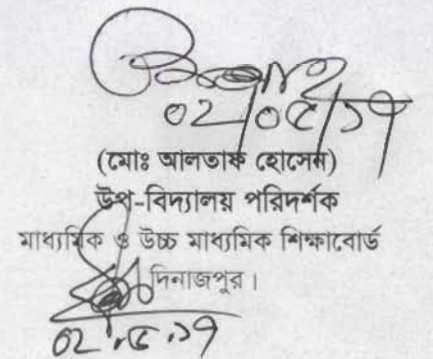 ০২/০৫/১৭
(মোঃ আলতাফ হোসেন)
উপ-বিদ্যালয় পরিদর্শক
মাধ্যমিক ও উচ্চ মাধ্যমিক শিক্ষাবোর্ড
দিনাজপুর।
০২.৫.১৭